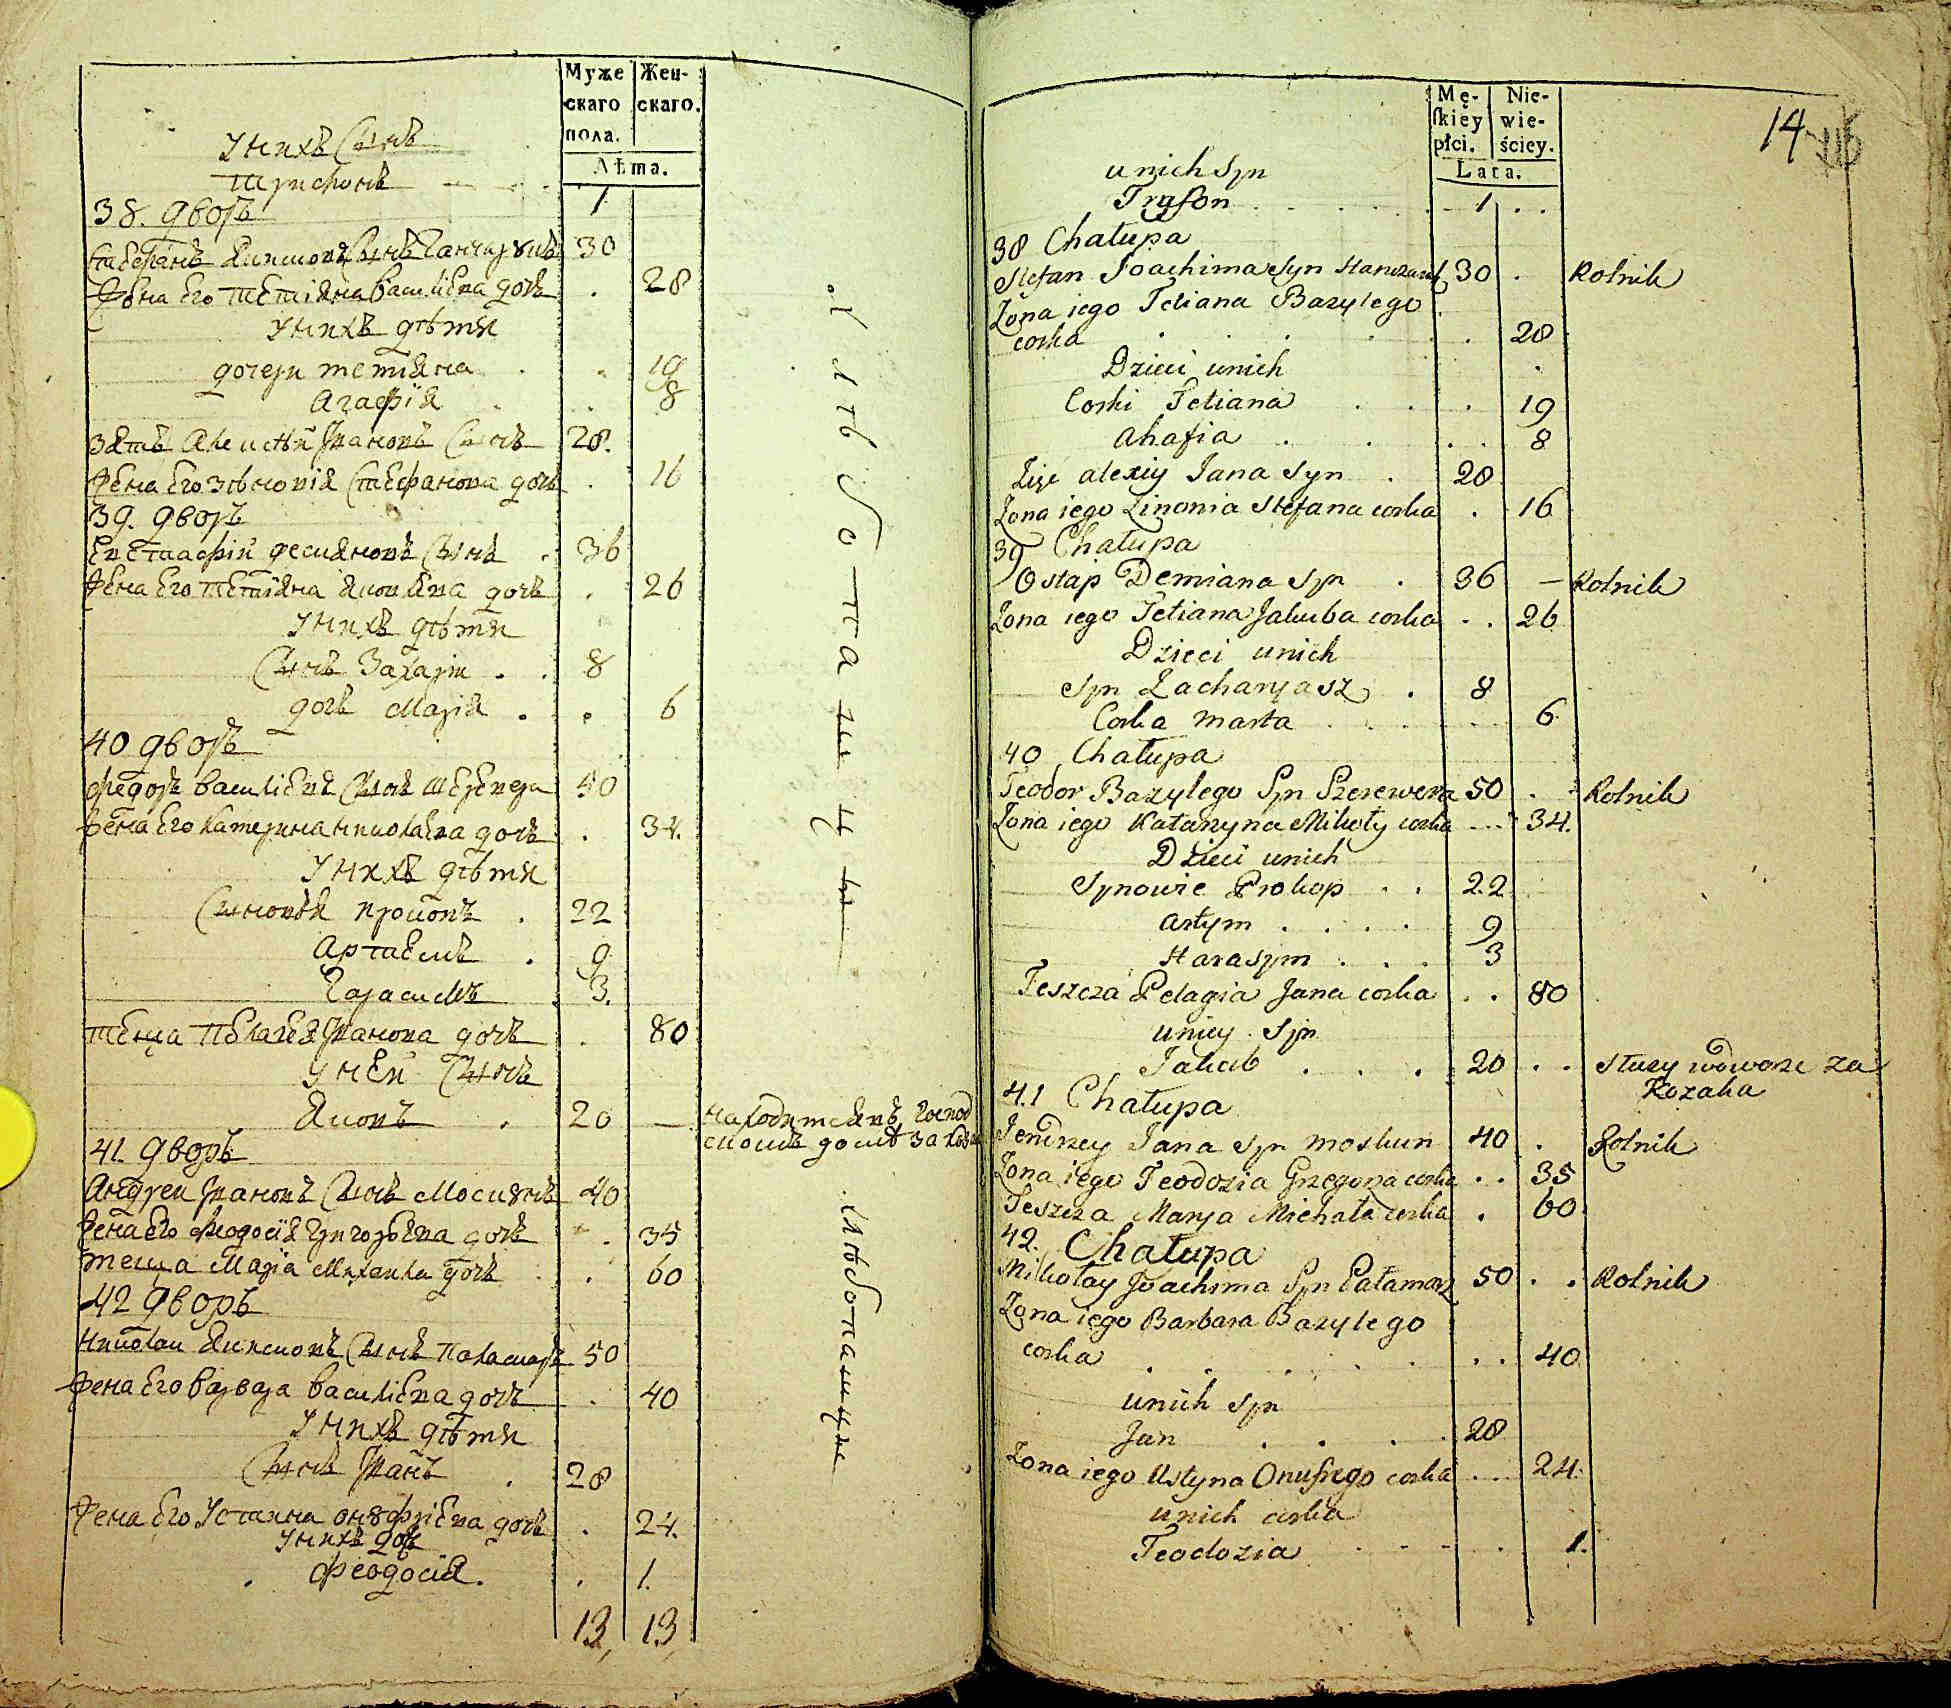 Муже
скаго
пола.
Жен-
скаго.
Лѣта.
У нихъ Сынъ
Трифонъ 1
38. дворъ
Стефанъ Якимовъ Сынъ Ганчарукъ 30
Жена Его Тетіяна Василіева дочь 28
У нихъ дѣти
дочери тетіяна 19
Агафія 8
зять Алексѣй Івановъ Сынъ 28.
Жена Его Зѣновія Стефанова дочь 16
39. дворъ
Евстафій Демяновъ Сынъ 36
Жена Его Тетіяна Яковлева дочь 26
У нихъ дѣти
Сынъ Захарій 8
дочь Марія 6
40 дворъ
Федоръ василіевъ Сынъ Шеревера 50
Жена Его Катерина Николаева дочь 34.
У нихъ дѣти
Сыновья Прокопъ 22
Артаемъ 9
Гарасимъ 3.
Теща Пелагея Іванова дочь 80
У ней Сынъ
Яковъ 20 — находится въ Господ
скомъ домѣ за
41. дворъ
Андрей Івановъ Сынъ Москунъ 40
Жена Его Феодосія Григорьева дочь 35
теща Марія Михаила дочь 60
42 дворъ
Николай Якимовъ Сынъ Паламаръ 50
Жена Его Варвара Василіева дочь 40
У нихъ дѣти
Сынъ Іванъ 28
Жена Его Устина Онуфріева дочь 24.
У нихъ дочь
Феодосія. 1.
13, 13,
хлѣбопашцы
хлѣбопашцы
Mę-
skiey
płci.
Nie-
wie-
ściey.
Lata.
14
unich Syn
Tryfon 1
38 Chałupa
Stefan Joachima Syn Hanczaruk 30 Rolnik
Zona iego Tetiana Bazylego
corka 28
Dzieci unich
Corki Tetiana 19
Ahafia 8
Zięć Alexiy Jana Syn 28
Zona iego Zinonia Stefana corka 16
39 Chałupa
Ostap Demiana Syn 36 — Rolnik
Zona iego Tetiana Jakuba corka 26
Dzieci unich
Syn Zacharyasz 8
Corka Marta 6
40 Chałupa
Teodor Bazylego Syn Szerewera 50 Rolnik
Zona iego Katarzyna Mikołÿ corka 34.
Dzieci unich
Synowie Prokop 22
Artym 9
Harasym 3
Teszcza Pelagia Jana corka 80
uniey Syn
Jakub 20 Służy wdworze za
Kozaka
41 Chałupa
Jendrzey Jana Syn Moskun 40 Rolnik
Zona iego Teodozia Grzegorza corka 35
Teszcza Marya Michała corka 60
42. Chałupa
Mikołay Joachima Syn Pałamarz 50 Rolnik
Zona iego Barbara Bazylego
corka 40
unich Syn
Jan 28
Zona iego Ustyna Onufrego corka 24.
unich corka
Teodozia 1.